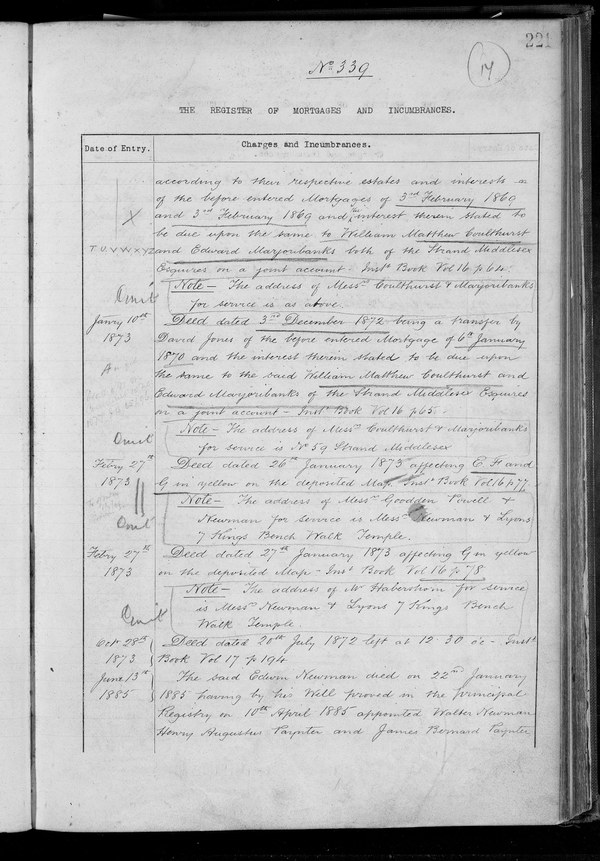 221
No 339
17
THE REGISTER OF MORTGAGES AND INCUMBRANCES.
Date of Entry.
Charges and Incumbrances.
according to their respective estates and interests
of the before entered Mortgages of 3rd February 1869
X
and 3rd February 1869 and the interest therein stated to
be due upon the same to William Matthew Coulthurst
T.U.V.W.X.Y.Z
and Edward Marjoribanks both of the Strand Middlesex
Esquires on a joint account - Inst Book Vol 16 p 64.
Omit
Note - The address of Messrs Coulthurst & Marjoribanks
for service is as above.
Janry 10th
1873
Deed dated 3rd December 1872 being a transfer by
David Jones of the before entered Mortgage of 6th January
1870 and the interest therein stated to be due upon
the same to the said William Matthew Coulthurst and
Edward Marjoribanks of the Strand Middlesex Esquires
on a joint account - Inst Book Vol 16 p 65.
Omit
Note - The address of Messrs Coulthurst & Marjoribanks
for service is No 59 Strand Middlesex
Febry 27th
1873
Deed dated 26th January 1873 affecting E F and
G in yellow on the deposited Map - Inst Book Vol 16 p 77.
Omit
Note - The address of Messrs Goodden Powell &
Newman for service is Messrs Newman & Lyons
7 Kings Bench Walk Temple.
Febry 27th
1873
Deed dated 27th January 1873 affecting G in yellow
on the deposited Map - Inst Book Vol 16 p 78
Omit
Note - The address of Mr Habershon for service
is Messrs Newman & Lyons 7 Kings Bench
Walk Temple
Oct 28th
1873
Deed dated 20th July 1872 left at 12.30 oc - Inst
Book Vol 17 p 194
June 13th
1885
The said Edwin Newman died on 22nd January
1885 having by his Will proved in the principal
Registry on 10th April 1885 appointed Walter Newman
Henry Augustus Paynter and James Bernard Paynter